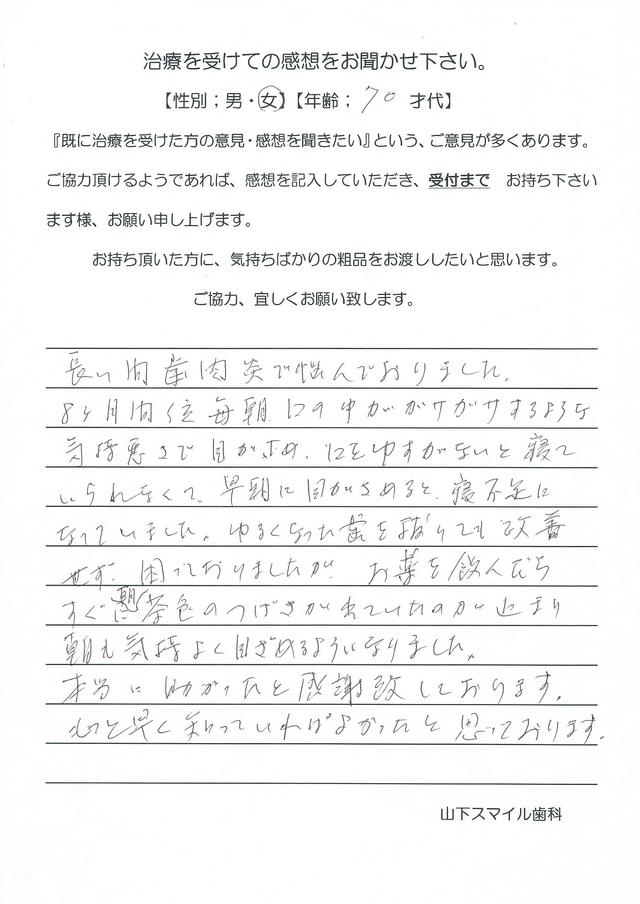 治療を受けての感想をお聞かせ下さい。
【性別；男・女】【年齢； 70 才代】
『既に治療を受けた方の意見・感想を聞きたい』という、ご意見が多くあります。
ご協力頂けるようであれば、感想を記入していただき、受付まで お持ち下さい
ます様、お願い申し上げます。
お持ち頂いた方に、気持ちばかりの粗品をお渡ししたいと思います。
ご協力、宜しくお願い致します。
長い間歯肉炎で悩んでおりました。
8ヶ月間位毎朝口の中がガサガサするような
気持悪さで目が求め、口をゆすがないと寝て
いられなくて、早朝に目がさめると、寝不足に
なっていました。ゆるくなった歯を抜いても改善
せず、困っておりましたが、お薬を飲んだら
すぐ朝に茶色のつばきが出ていたのが止まり
朝も気持よく目ざめるようになりました。
本当に助かったと感謝致しております。
もっと早く知っていればよかったと思っております。
山下スマイル歯科